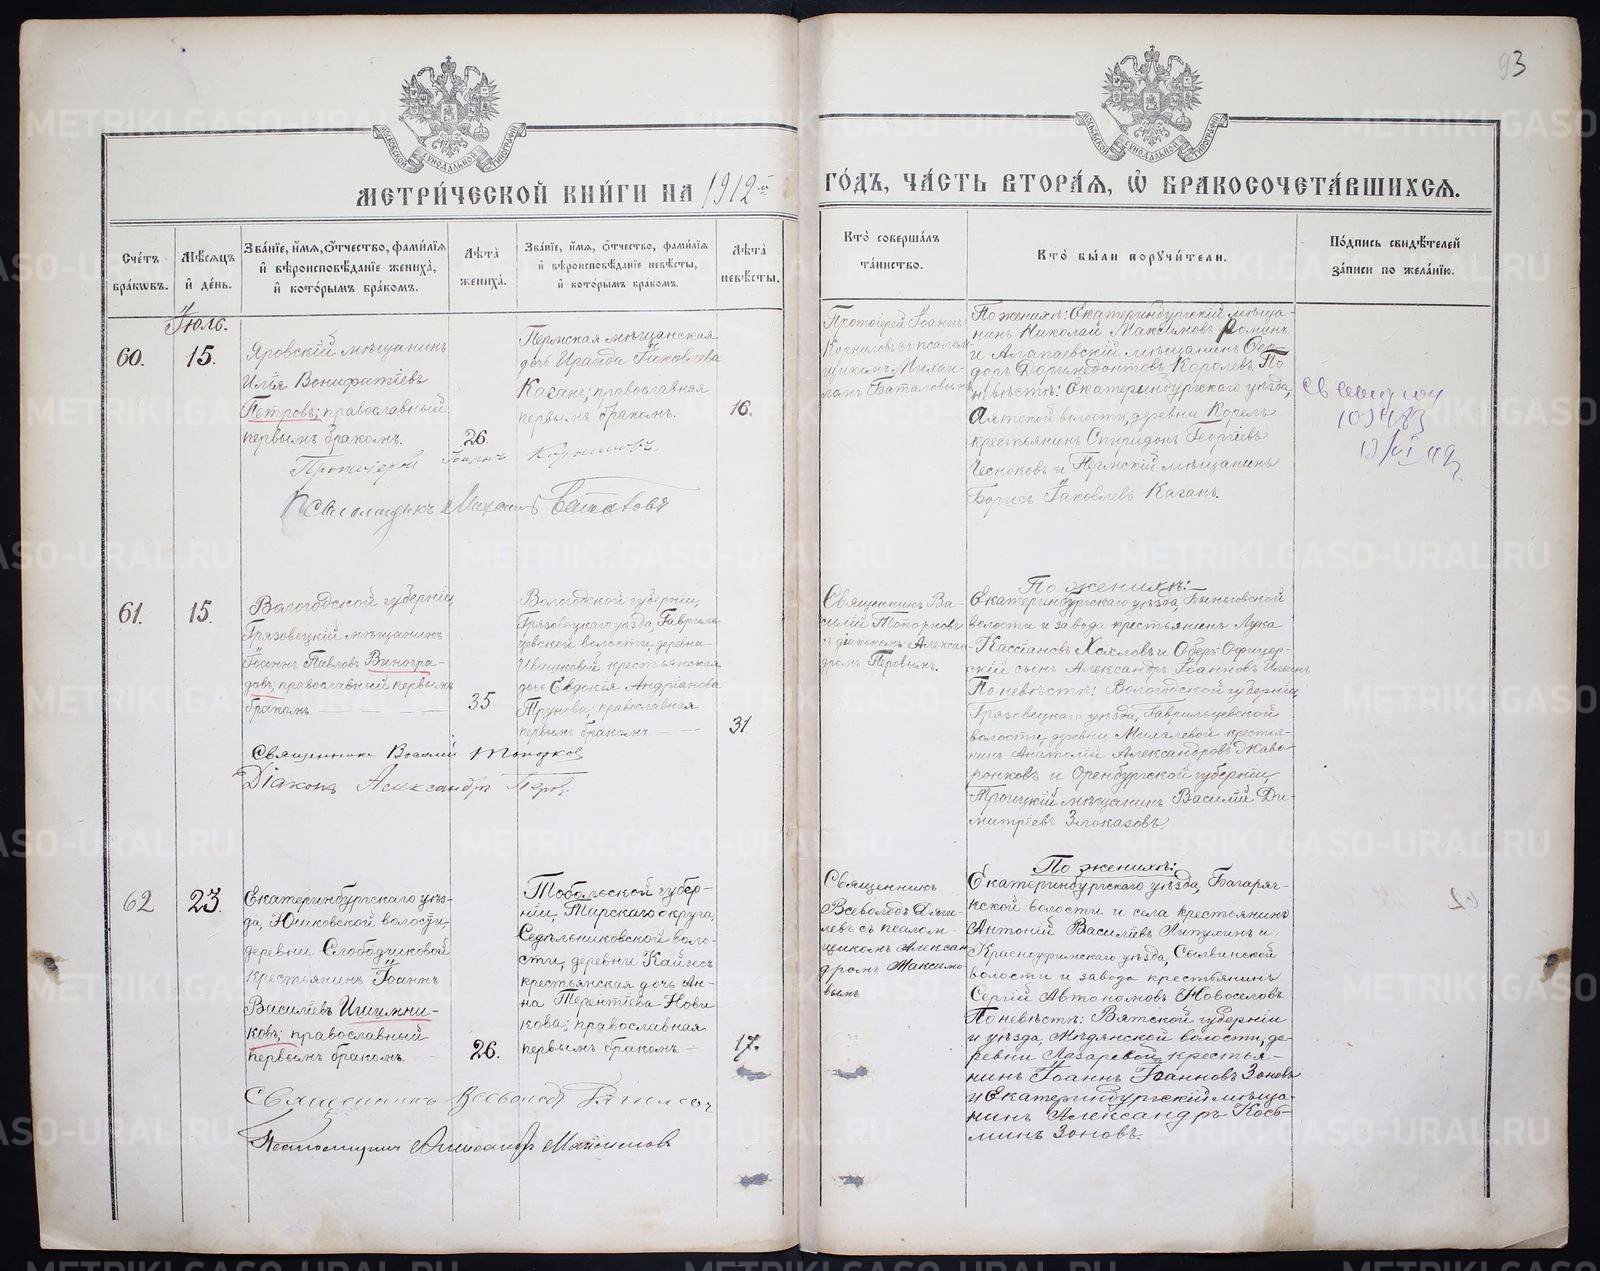 93
МОСКОВСКОЙ СѴНОДАЛЬНОЙ ТИПОГРАФИИ
МОСКОВСКОЙ СѴНОДАЛЬНОЙ ТИПОГРАФИИ
МЕТРИ́ЧЕСКОЙ КНИ́ГИ НА 1912й ГО́ДЪ, ЧА́СТЬ ВТОРА́Я, Ѡ БРАКОСОЧЕТА́ВШИХСЯ.
Сче́тъ
бра́кѡвъ.
Мѣ́сяцъ
и҆ де́нь.
Зва́нїе, и҆́мя, ѻ҆́тчество, фами́лїя
и҆ вѣроисповѣ́данїе жениха̀,
и҆ кото́рымъ бра́комъ.
Лѣ́та
жениха̀.
Зва́нїе, и҆́мя, ѻ҆́тчество, фами́лїя
и҆ вѣроисповѣ́данїе невѣ́сты,
и҆ кото́рымъ бра́комъ.
Лѣ́та
невѣ́сты.
Кто̀ соверша́лъ
та́инство.
Кто̀ бы́ли поручи́тели.
По́дпись свидѣ́телей
за́писи по жела́нїю.
Іюль.
60.
15.
Яровскій мѣщанинъ
Илія Вонифатіевъ
Петровъ; православный
первымъ бракомъ.
26.
Пермская мѣщанская
дочь Ираида Іаковлева
Казанъ; православная
первымъ бракомъ.
16.
Протоіерей Іоаннъ
Корниловъ съ псалом-
щикомъ Михаи-
ломъ Баталовымъ
По женихѣ: Екатеринбургскій мѣща-
нинъ Николай Максимовъ Роминъ
и Алапаевскій мѣщанинъ Ѳео-
доръ Доримедонтовъ Королевъ. По
невѣстѣ: Екатеринбургскаго уѣзда,
Аятской волости, деревни Корелъ
крестьянинъ Спиридонъ Георгіевъ
Чесноковъ и Пермскій мѣщанинъ
Борисъ Іаковлевъ Казанъ.
Протоіерей Іоаннъ Корниловъ
Псаломщикъ Михаилъ Баталовъ
61.
15.
Вологодской губерніи,
Грязовецкій мѣщанинъ
Іоаннъ Павловъ Виногра-
довъ; православный первымъ
бракомъ
35.
Вологодской губерніи,
Грязовецкаго уѣзда, Гаврилъ-
цевской волости, деревни
Ивашковой крестьянская
дочь Евдокія Андріанова
Трунова; православная
первымъ бракомъ
31
Священникъ Ва-
силій Топорковъ
съ діакономъ Алексан-
дромъ Перовымъ.
По женихѣ:
Екатеринбургскаго уѣзда, Быньговской
волости и завода крестьянинъ Лука
Кассіановъ Хохловъ и Оберъ-Офицер-
скій сынъ Александръ Іоанновъ Ильинъ
По невѣстѣ: Вологодской губерніи,
Грязовецкаго уѣзда, Гаврильцевской
волости, деревни Михалевой крестья-
нинъ Анатолій Александровъ Жаво-
ронковъ и Оренбургской губерніи,
Троицкій мѣщанинъ Василій Ди-
митріевъ Злоказовъ.
Священникъ Василій Топорков
Діаконъ Александръ Перов.
62
23.
Екатеринбургскаго уѣз-
да, Юшковской волости,
деревни Слободчиковой
крестьянинъ Іоаннъ
Василіевъ Игишни-
ковъ; православный
первымъ бракомъ.
26.
Тобольской губер-
ніи, Тарскаго округа,
Седѣльниковской воло-
сти, деревни Кайлесъ
крестьянская дочь Ан-
на Терентіева Нови-
кова; православная
первымъ бракомъ.
17.
Священникъ
Всеволодъ Дяги-
левъ съ псалом-
щикомъ Алексан-
дромъ Максимо-
вымъ
По женихѣ:
Екатеринбургскаго уѣзда, Багаряк-
ской волости и села крестьянинъ
Антоній Василіевъ Липухинъ и
Красноуфимскаго уѣзда, Сылвинской
волости и завода крестьянинъ
Сергій Автономовъ Новоселовъ.
По невѣстѣ: Вятской губерніи
и уѣзда, Мѣдянской волости, де-
ревни Лазаревой крестья-
нинъ Іоаннъ Іоанновъ Зоновъ
и Екатеринбургскій мѣща-
нинъ Александръ Косъ-
минъ Зоновъ.
Священникъ Всеволодъ Дягилевъ
Псаломщикъ Александръ Максимовъ
METRIKI.GASO-URAL.RU